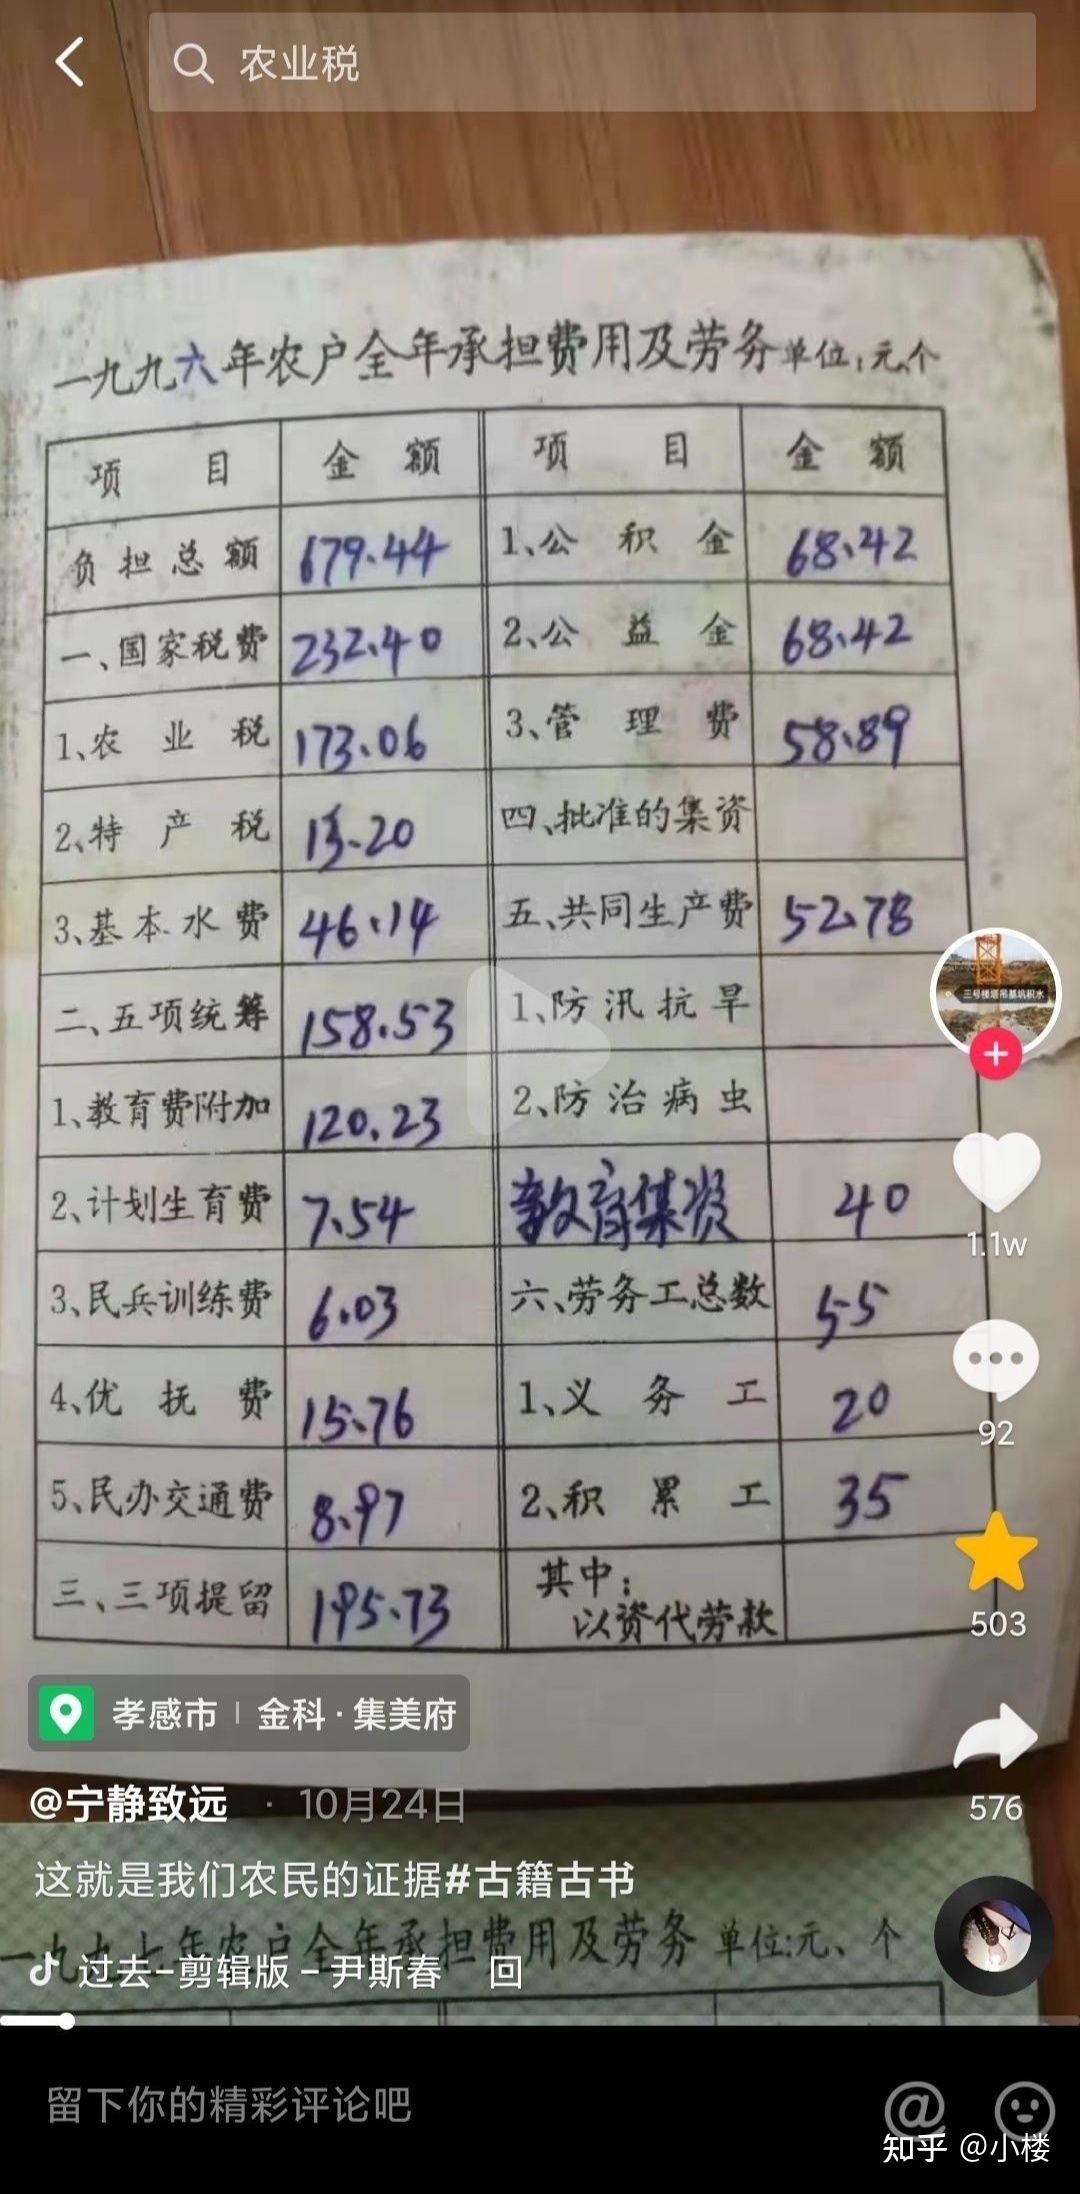 农业税
一九九六年农户全年承担费用及劳务 单位:元、个
项 目 金 额 项 目 金 额
负担总额 679.44 1、公积金 68.42
一、国家税费 232.40 2、公益金 68.42
1、农业税 173.06 3、管理费 58.89
2、特产税 13.20 四、批准的集资
3、基本水费 46.14 五、共同生产费 52.78
二、五项统筹 158.53 1、防汛抗旱
1、教育费附加 120.23 2、防治病虫
2、计划生育费 7.54 教育集资 40
3、民兵训练费 6.03 六、劳务工总数 55
4、优抚费 15.76 1、义务工 20
5、民办交通费 8.97 2、积累工 35
三、三项提留 195.73 其中:
以资代劳款
三号楼塔吊基坑积水
1.1w
92
503
576
孝感市 | 金科·集美府
@宁静致远 · 10月24日
这就是我们农民的证据#古籍古书
一九九七年农户全年承担费用及劳务 单位:元、个
过去-剪辑版 - 尹斯春 回
留下你的精彩评论吧
知乎 @小楼